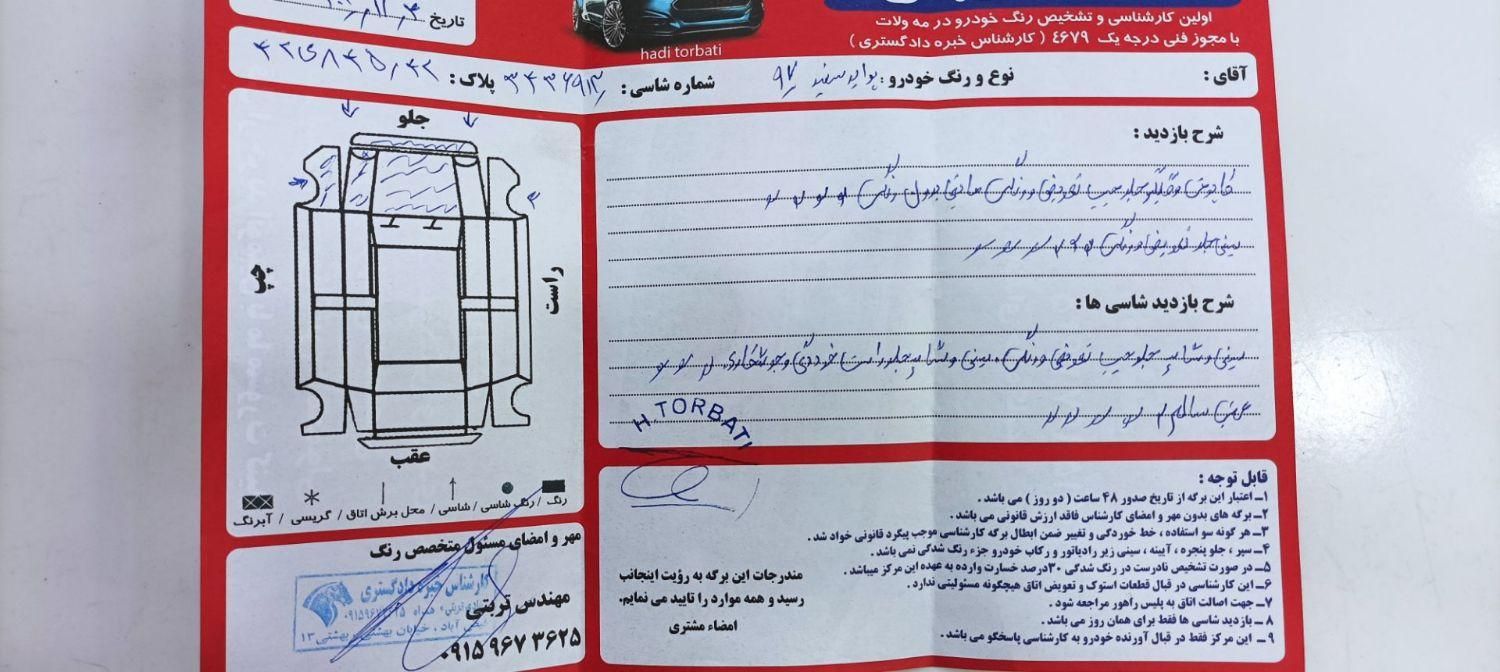 اولین کارشناسی و تشخیص رنگ خودرو در مه ولات
با مجوز فنی درجه یک ٤٦٧٩ ( کارشناس خبره دادگستری )
hadi torbati
تاریخ
آقای :
نوع و رنگ خودرو : پراید سفید ۹۷
شماره شاسی :
پلاک :
جلو
چپ
راست
عقب
رنگ / رنگ شاسی / شاسی / محل برش اتاق / گریسی / آبرنگ
شرح بازدید :
کاپوت و گلگیر جلو چپ تعویض و رنگ
سینی جلو تعویض و رنگ
شرح بازدید شاسی ها :
سینی و شاسی جلو چپ تعویض و رنگ، سینی و شاسی جلو راست خوردگی و جوشکاری
عقب سالم
H. TORBATI
قابل توجه :
۱ـ اعتبار این برگه از تاریخ صدور ۴۸ ساعت ( دو روز ) می باشد .
۲ـ برگه های بدون مهر و امضای کارشناس فاقد ارزش قانونی می باشد .
۳ـ هر گونه سو استفاده ، خط خوردگی و تغییر ضمن ابطال برگه کارشناسی موجب پیگرد قانونی خواد شد .
۴ـ سپر ، جلو پنجره ، آیینه ، سینی زیر رادیاتور و رکاب خودرو جزء رنگ شدگی نمی باشد .
۵ـ در صورت تشخیص نادرست در رنگ شدگی ۳۰درصد خسارت وارده به عهده این مرکز میباشد .
۶ـ این کارشناسی در قبال قطعات استوک و تعویض اتاق هیچگونه مسئولیتی ندارد .
۷ـ جهت اصالت اتاق به پلیس راهور مراجعه شود .
۸ ـ بازدید شاسی ها فقط برای همان روز می باشد .
۹ ـ این مرکز فقط در قبال آورنده خودرو به کارشناسی پاسخگو می باشد .
مندرجات این برگه به رؤیت اینجانب
رسید و همه موارد را تایید می نمایم.
امضاء مشتری
مهر و امضای مسئول متخصص رنگ
کارشناس خبره دادگستری
مهندس تربتی
۰۹۱۵ ۹۶۷ ۳۶۲۵